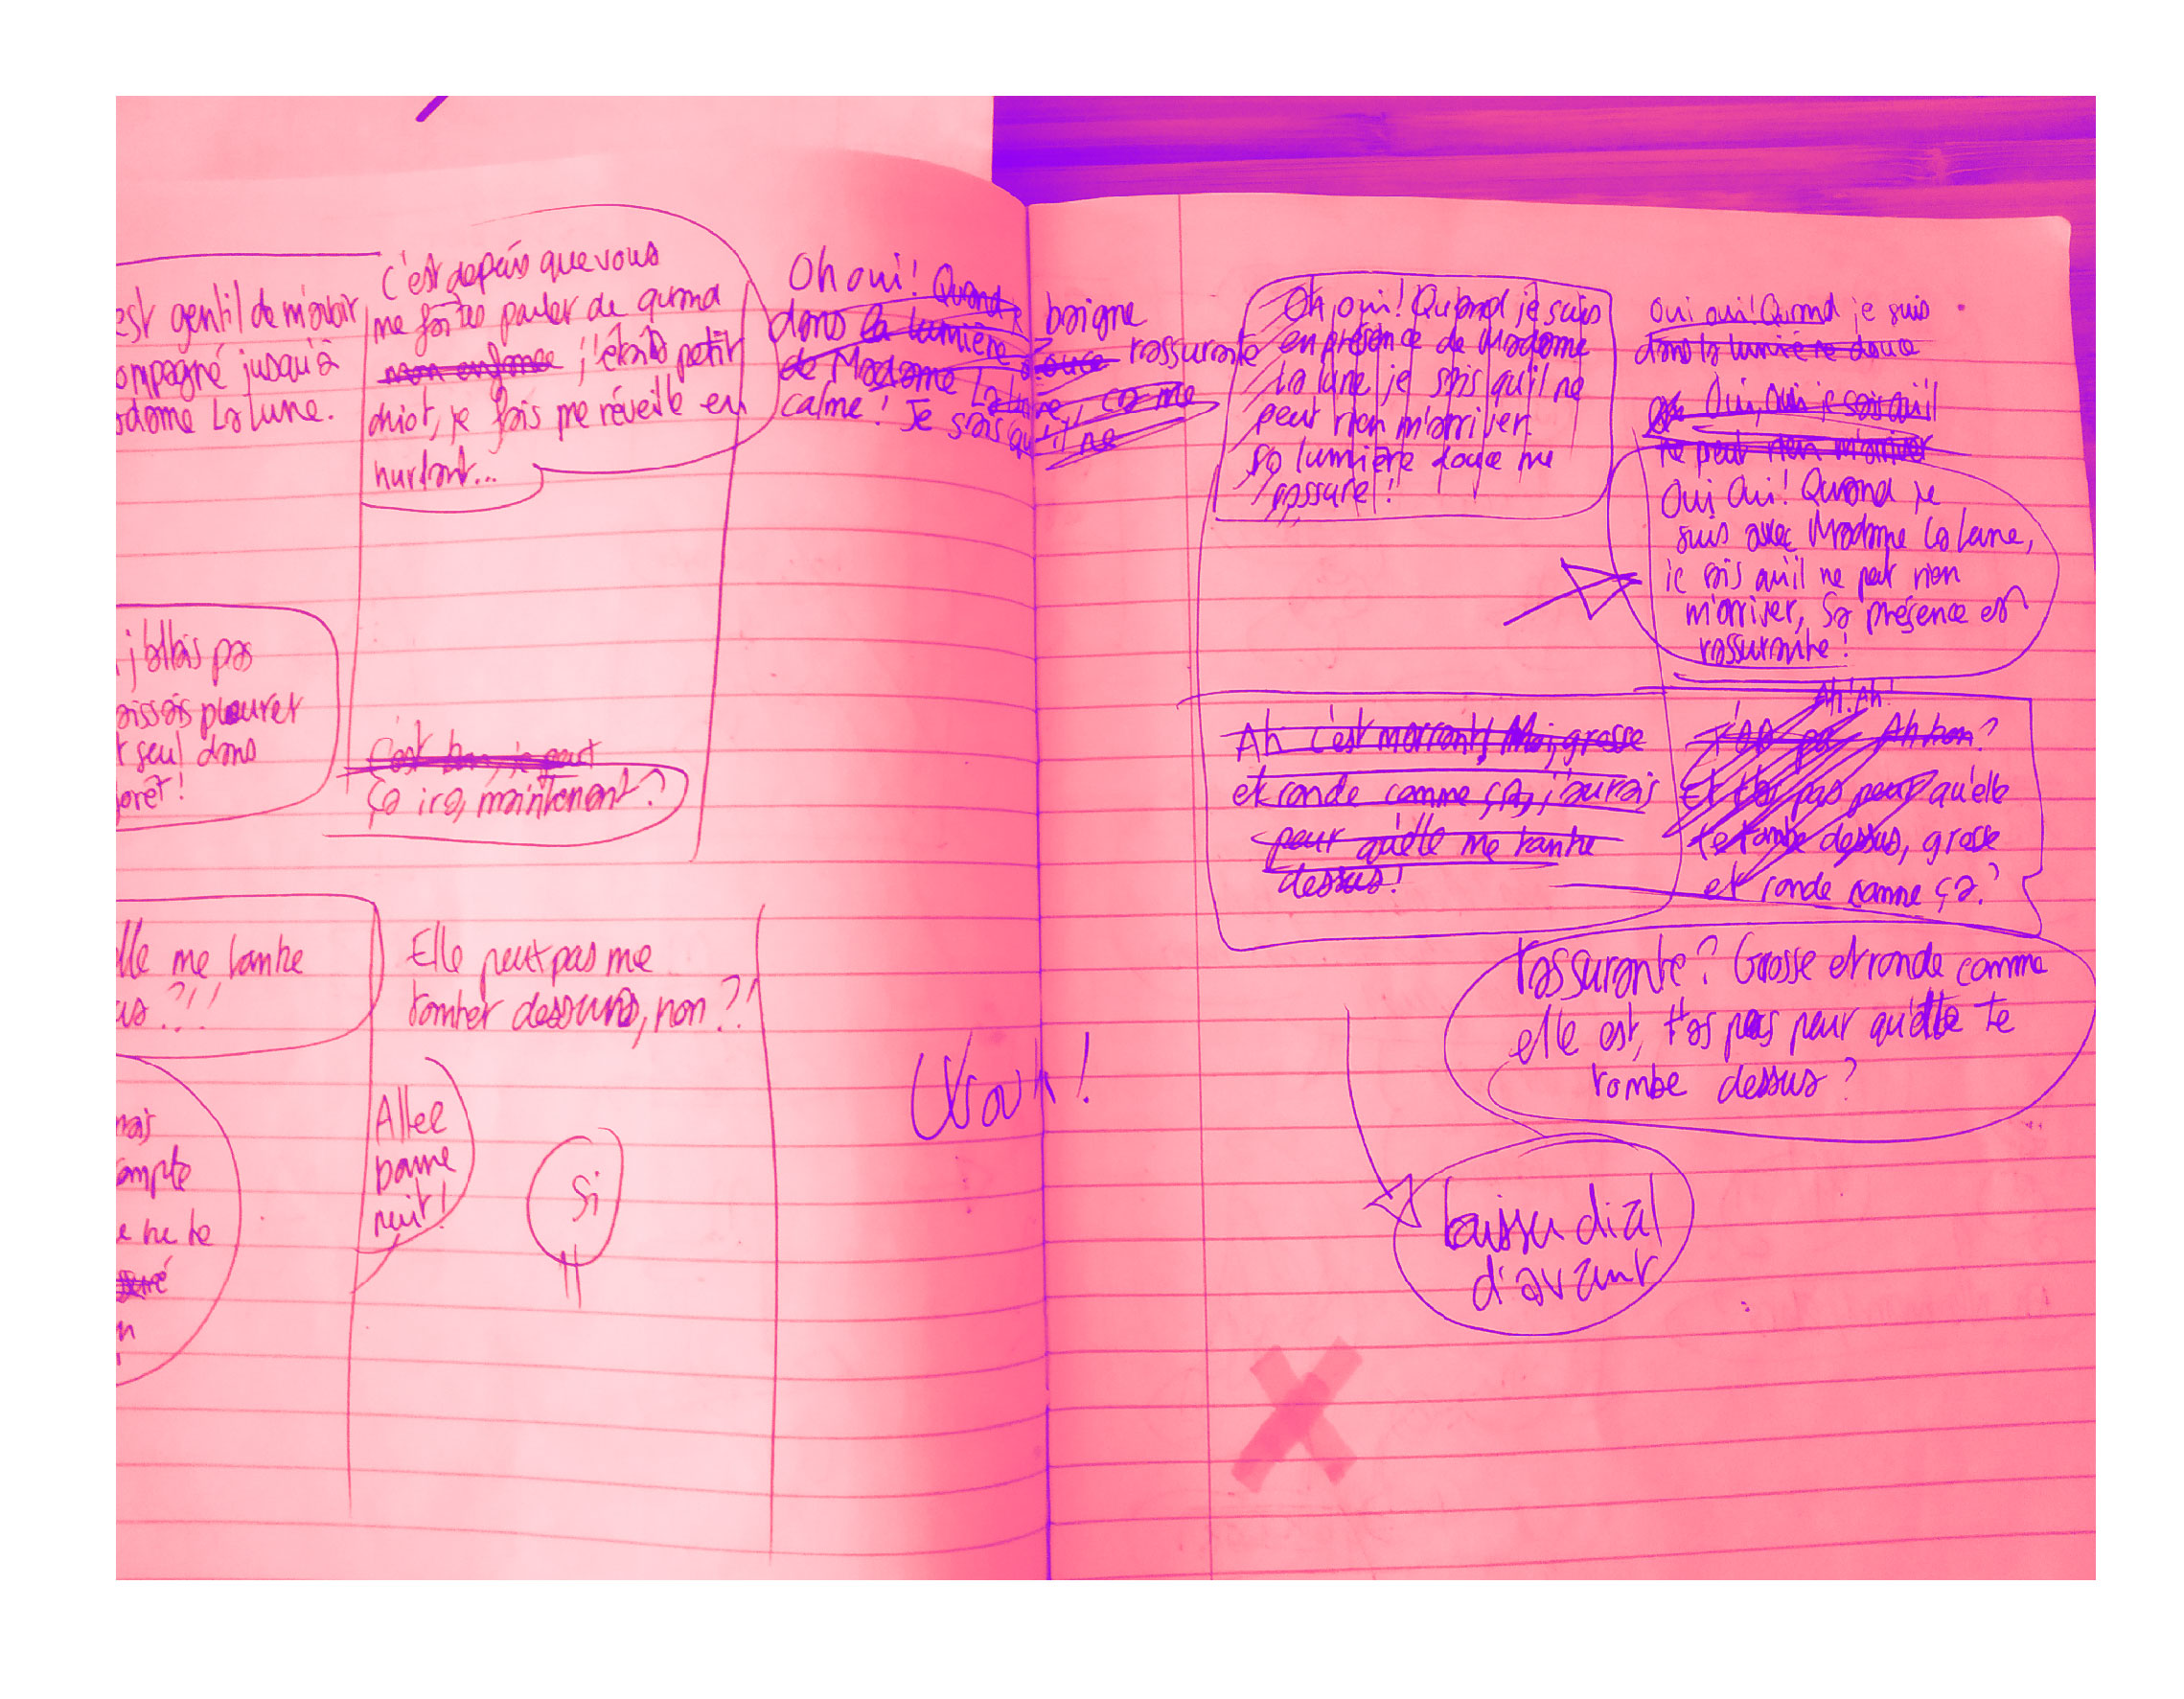 est gentil de m'avoir
ompagné jusqu'à
adame La Lune.
C'est depuis que vous
me faites parler de quand
mon enfance j'étais petit
chiot, je fais me réveille en
hurlant...
j'allais pas
aissais pleurer
t seul dans
oret!
C'est bon, je peut
ça ira, maintenant?
elle me tombe
us?!!
Elle peut pas me
tomber dessus, non?!
mais
compte
e ne te
Allee
bonne
nuit!
Si
Oh oui! Quand je baigne
dans la lumière douce rassurante
de Madame La Lune, ça me
calme! Je sais qu'il ne
Wouh!
Oh oui! Quand je suis
en présence de Madame
La Lune, je sais qu'il ne
peut rien m'arriver.
Sa lumière douce me
rassure!
Oui oui! Quand je suis
dans la lumière douce
Oui, oui je sais qu'il
ne peut rien m'arriver
Oui Oui! Quand je
suis avec Madame La Lune,
je sais qu'il ne peut rien
m'arriver, Sa présence est
rassurante!
Ah c'est marrant! Moi, grosse
et ronde comme ça, j'aurais
peur qu'elle me tombe
dessus!
Ah! Ah!
T'as pas Ah bon?
Et t'as pas peur qu'elle
te tombe dessus, grosse
et ronde comme ça?
rassurante? Grosse et ronde comme
elle est, t'as pas peur qu'elle te
tombe dessus?
laisser dial
d'avant